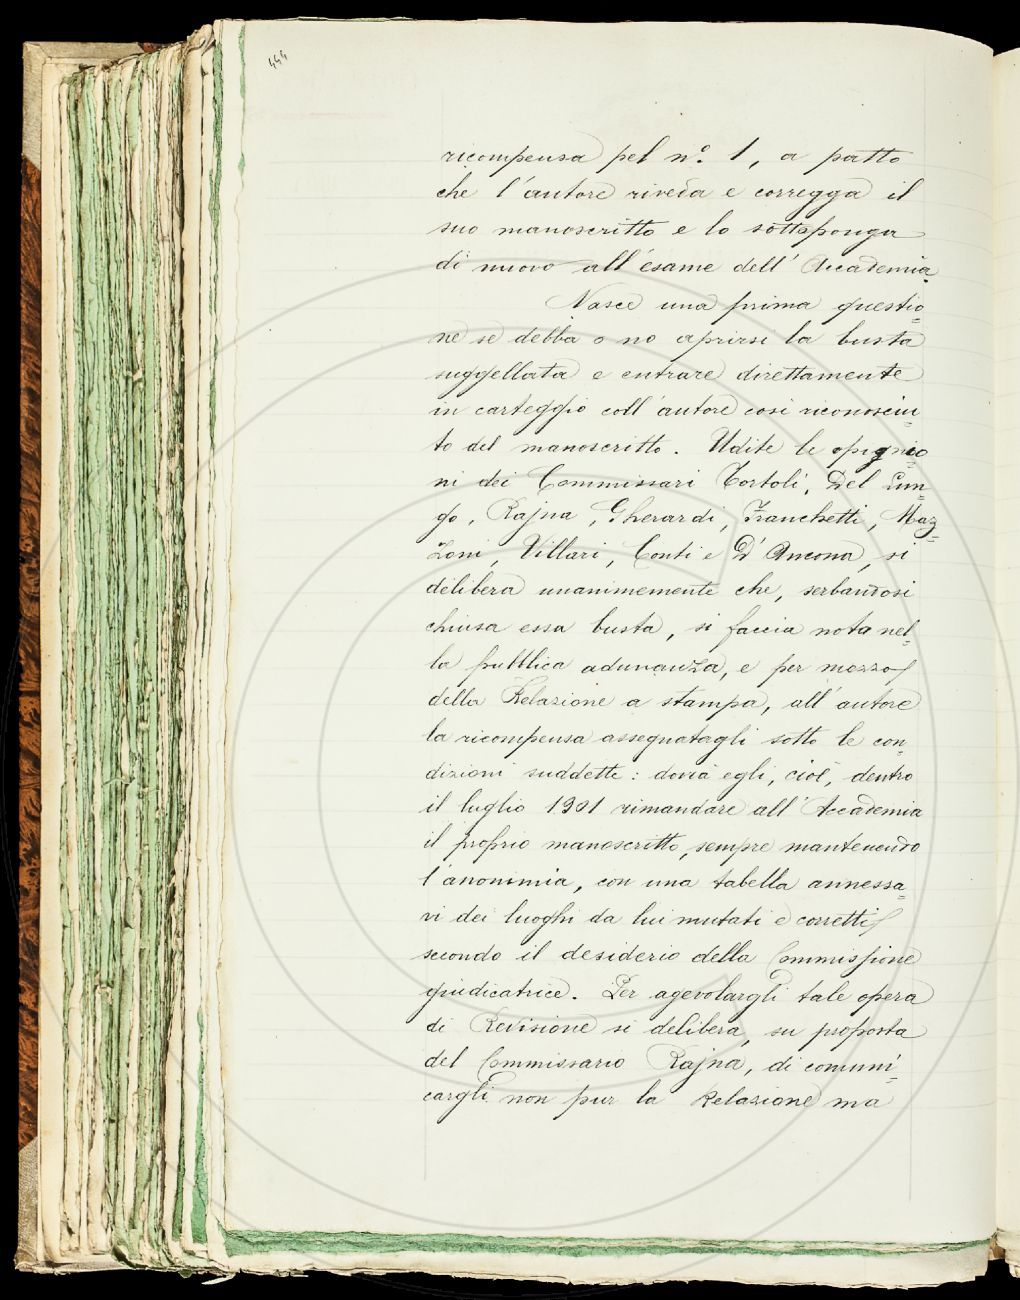 444
ricompensa pel n.° 1, a patto
che l'autore riveda e corregga il
suo manoscritto e lo sottoponga
di nuovo all'esame dell'Accademia.
Nasce una prima questio=
ne se debba o no aprirsi la busta
suggellata e entrare direttamente
in carteggio coll'autore così riconosciu=
to del manoscritto. Udite le opignio=
ni dei Commissari Tortoli, Del Lun=
go, Rajna, Gherardi, Franchetti, Maz=
zoni, Villari, Conti e D'Ancona, si
delibera unanimemente che, serbandosi
chiusa essa busta, si faccia nota nel=
la pubblica adunanza, e per mezzo
della Relazione a stampa, all'autore
la ricompensa assegnatagli sotto le con=
dizioni suddette: dovrà egli, cioè, dentro
il luglio 1901 rimandare all'Accademia
il proprio manoscritto, sempre mantenendo
l'anonimia, con una tabella annessa=
vi dei luoghi da lui mutati e corretti
secondo il desiderio della Commissione
giudicatrice. Per agevolargli tale opera
di Revisione si delibera, su proposta
del Commissario Rajna, di comuni=
cargli non pur la Relazione ma